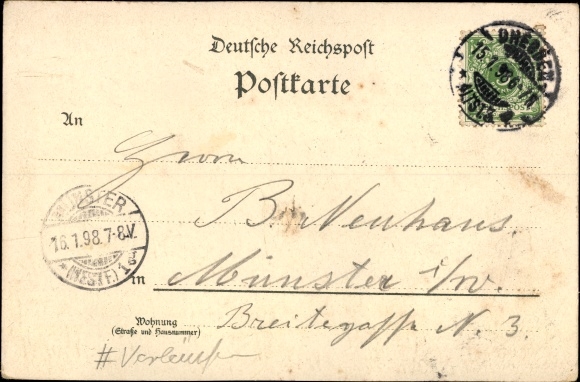 Deutsche Reichspost
Postkarte
DRESDEN
15.1.98
ALTST.
An
Herrn
B. Neuhaus.
MÜNSTER
16.1.98.7-8V.
(WESTF.) 1
in Münster i/W.
Wohnung
(Straße und Hausnummer)
Breitegasse N. 3.